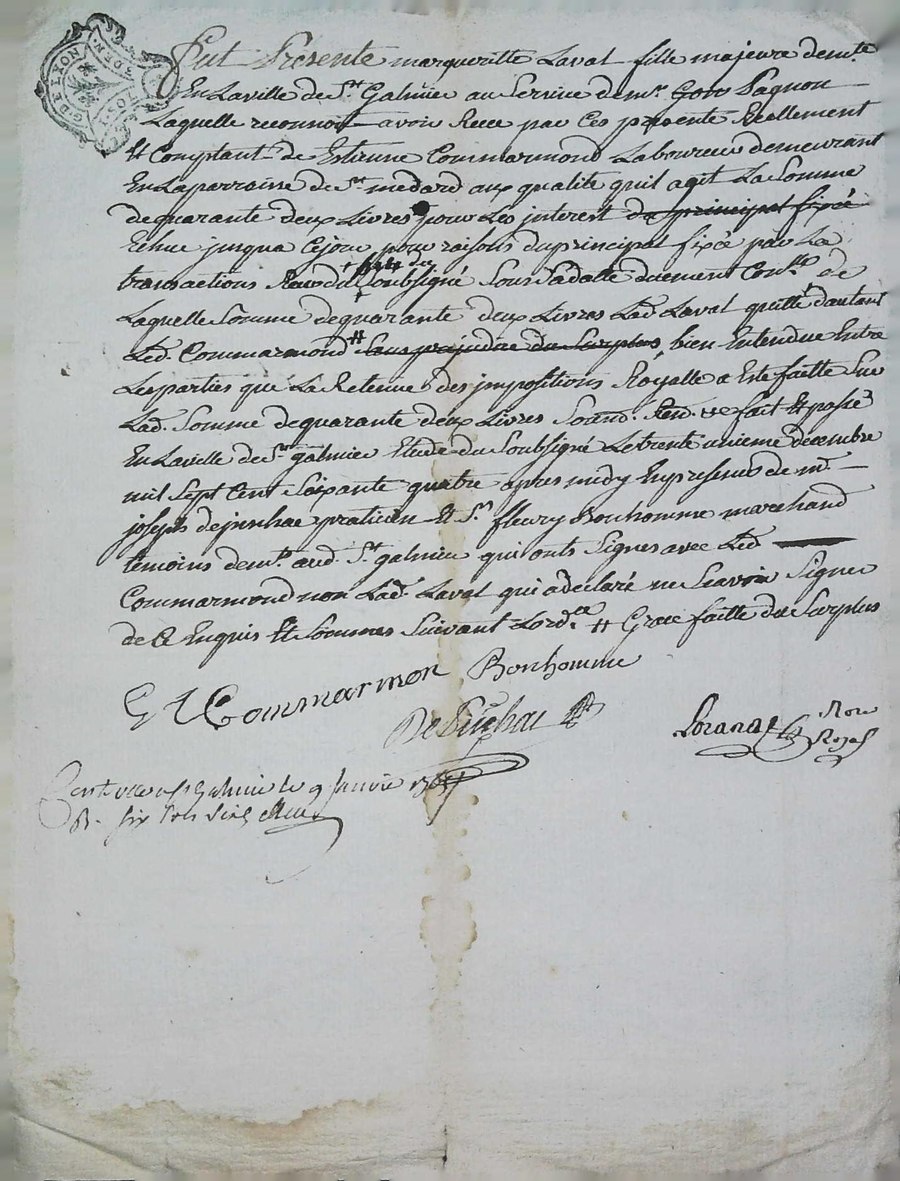 Fut Presente margueritte Laval fille majeure demte
En Laville de St Galmier au Service de mr Pagnon
Laquelle reconnoit avoir Recu par Ces presente Reellement
& Comptant de Estienne Commarmond Laboureur demeurant
En Laparroisse de St medard aux qualité quil agit La Somme
dequarante deux Livres pour Les interest du principal fixée
Echue jusqua Cejour pour raisons du principal fixée par La
transactions Recu du Soubsigné Sous Sadatte duement Conlée de
Laquelle Somme dequarante deux Livres Lad. Laval quitte dautant
Led. Commarmond # Sans prejudice du Surplus, bien Entendue Entre
Lesparties que La Retenue des impositions Royalle a Este faitte Sur
Lad. Somme dequarante deux Livres fait & passé
En Laville de St galmier Etude du Soubsigné Le trente unieme décembre
mil Sept Cent Soixante quatre apres midy En presence de mr
joseph praticien & Sr fleury Bonhomme marchand
temoins demt aud. St galmier qui onts Signes avec Led
Commarmond non Lad. Laval qui a declaré ne Scavoir Signer
de Ce Enquis Et Sommes Suivant Lordce # Grace faitte du Surplus
E Commarmon Bonhomme
Nore
Royal
a St Galmier le 9 Janvie 1765
R. six sols